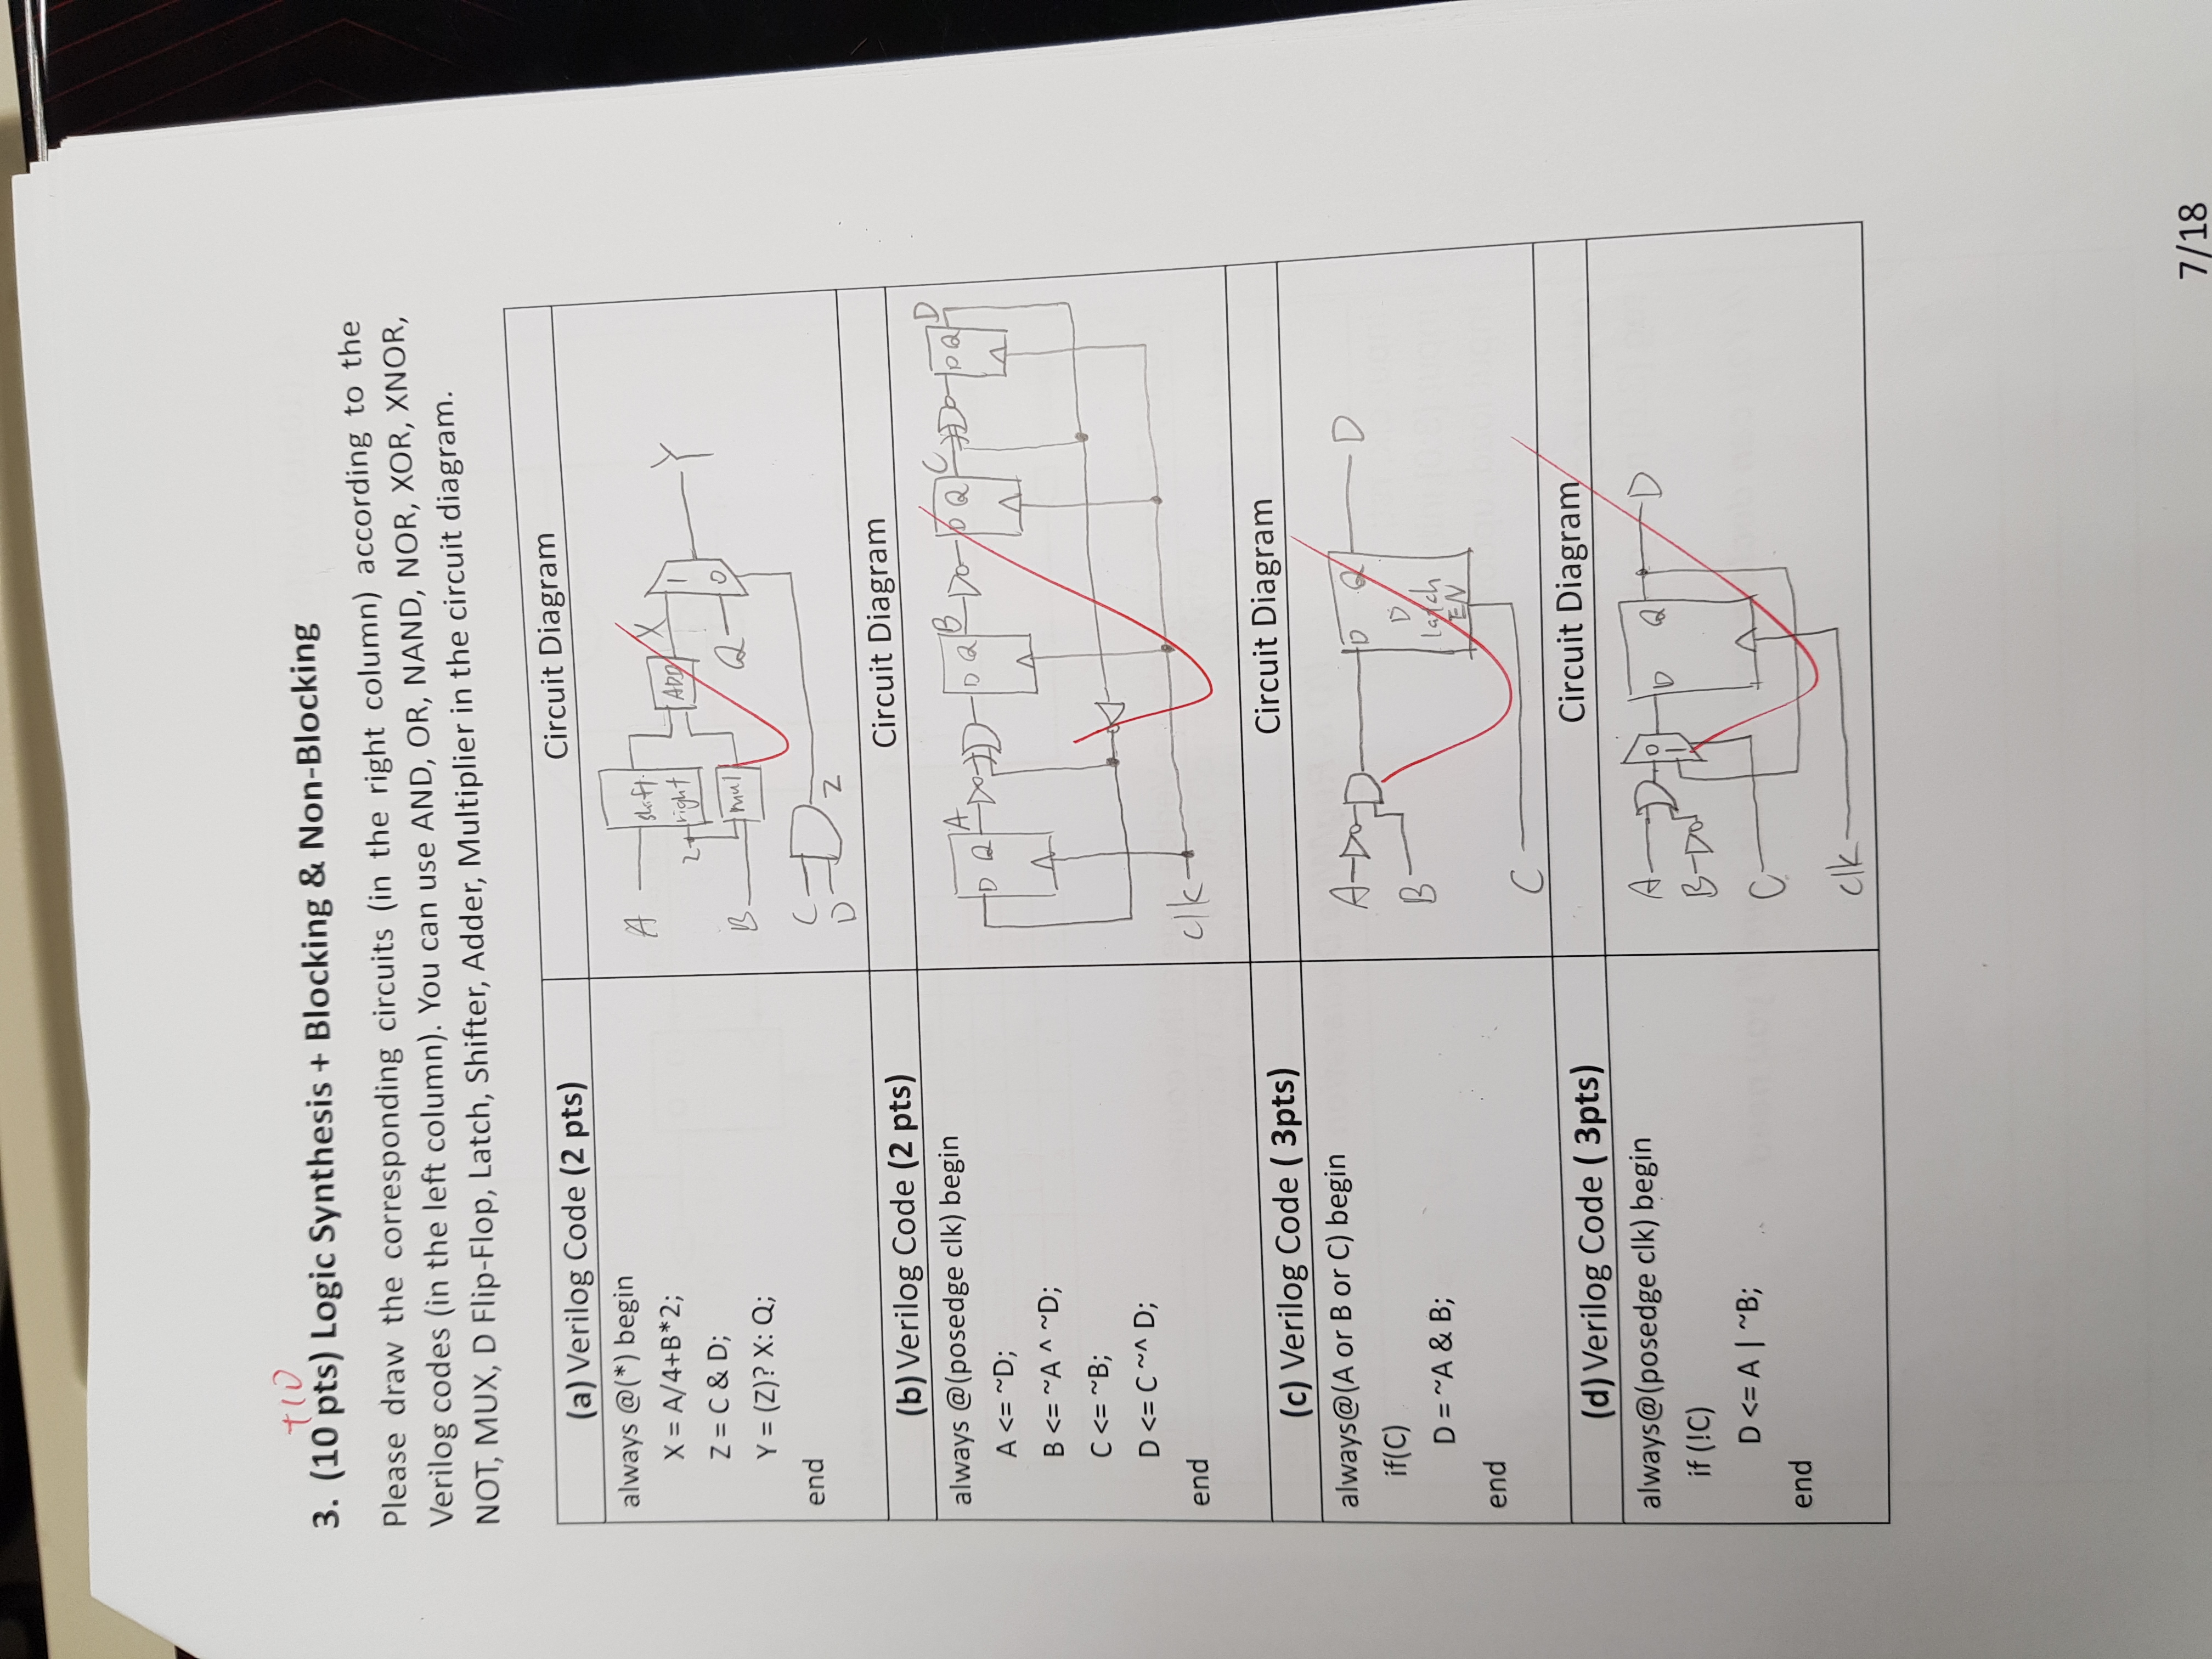 +10
3. (10 pts) Logic Synthesis + Blocking & Non-Blocking
Please draw the corresponding circuits (in the right column) according to the
Verilog codes (in the left column). You can use AND, OR, NAND, NOR, XOR, XNOR,
NOT, MUX, D Flip-Flop, Latch, Shifter, Adder, Multiplier in the circuit diagram.
(a) Verilog Code (2 pts)
Circuit Diagram
always @(*) begin
X = A/4+B*2;
Z = C & D;
Y = (Z)? X: Q;
end
A
shift
right
2
B
mul
ADD
X
1
Q
0
Y
C
D
Z
(b) Verilog Code (2 pts)
Circuit Diagram
always @(posedge clk) begin
A <= ~D;
B <= ~A ^ ~D;
C <= ~B;
D <= C ~^ D;
end
D Q A
D Q B
D Q C
D Q D
clk
(c) Verilog Code ( 3pts)
Circuit Diagram
always@(A or B or C) begin
if(C)
D = ~A & B;
end
A
B
D Q
D
latch
EN
D
C
(d) Verilog Code ( 3pts)
Circuit Diagram
always@(posedge clk) begin
if (!C)
D <= A | ~B;
end
A
B
0
1
D Q
D
C
clk
7/18